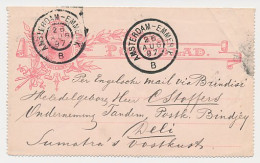 AMSTERDAM-EMMERIK
26 AUG 97
B
AMSTERDAM-EMMERIK
26 AUG 97
B
Per Engelsche mail via Brindisi
Weledelgeboren Heer C. Stoffers
Onderneming Tandem, Postk. Bindjey
Deli
Sumatra's Oostkust